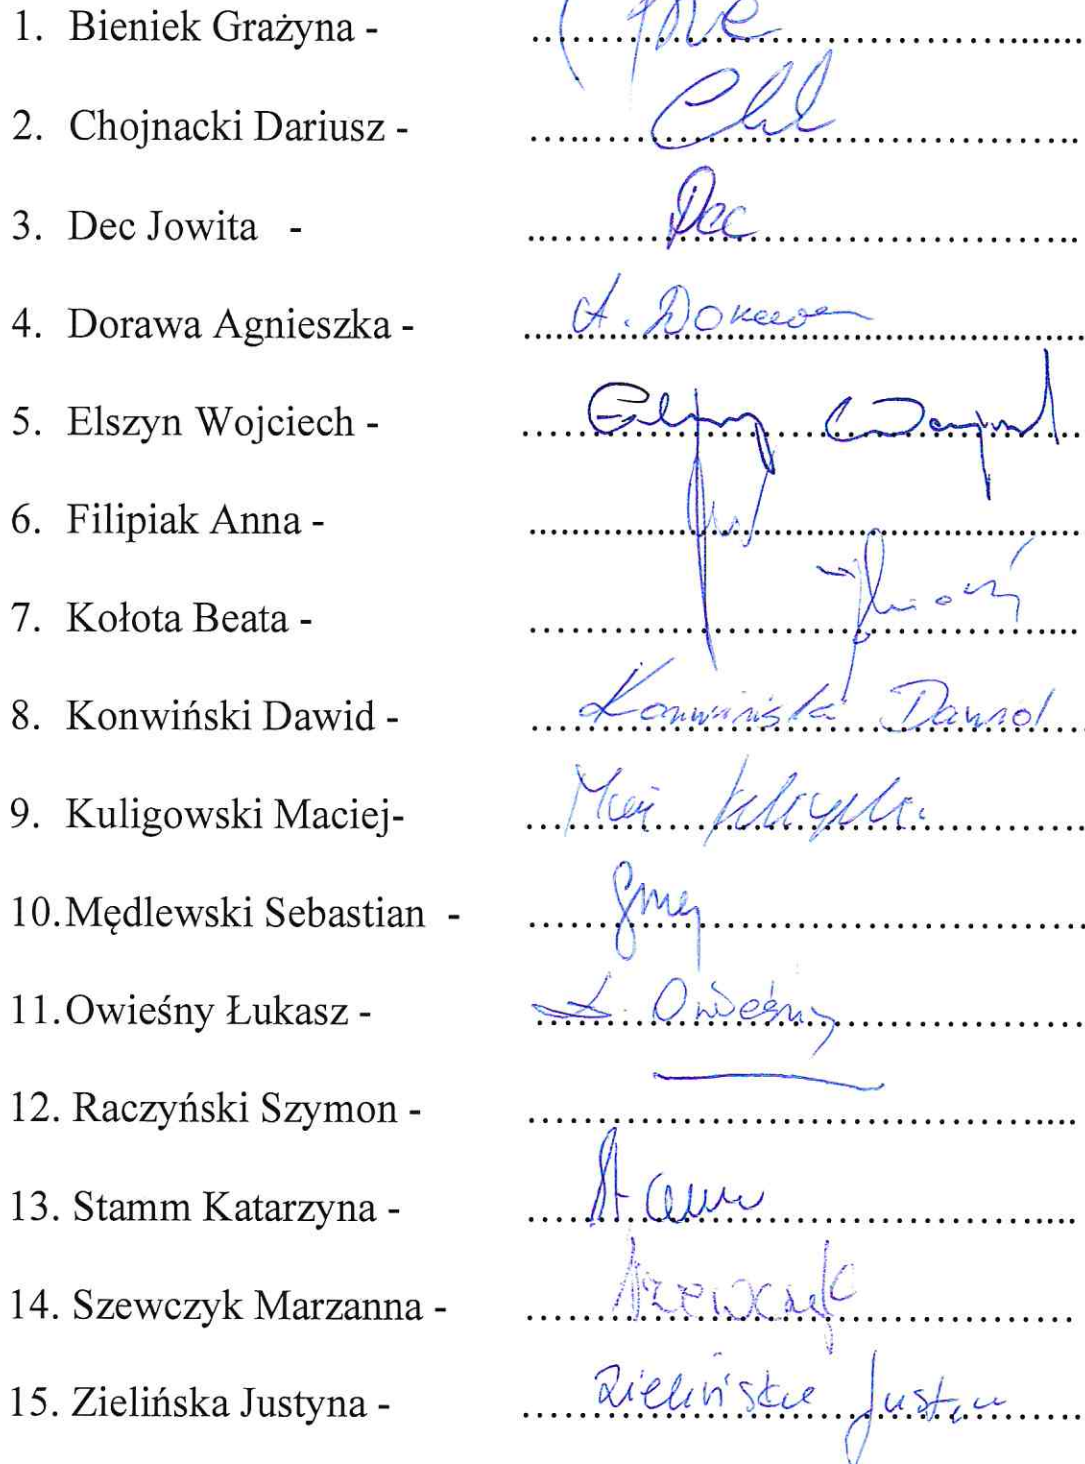 1. Bieniek Grażyna - ....................................
2. Chojnacki Dariusz - ....................................
3. Dec Jowita - Dec
4. Dorawa Agnieszka - A. Dorawa
5. Elszyn Wojciech - ....................................
6. Filipiak Anna - ....................................
7. Kołota Beata - ....................................
8. Konwiński Dawid - Konwiński Dawid
9. Kuligowski Maciej- ....................................
10. Mędlewski Sebastian - ....................................
11. Owieśny Łukasz - Ł. Owieśny
12. Raczyński Szymon - ....................................
13. Stamm Katarzyna - Stamm
14. Szewczyk Marzanna - Szewczyk
15. Zielińska Justyna - Zielińska Justyna